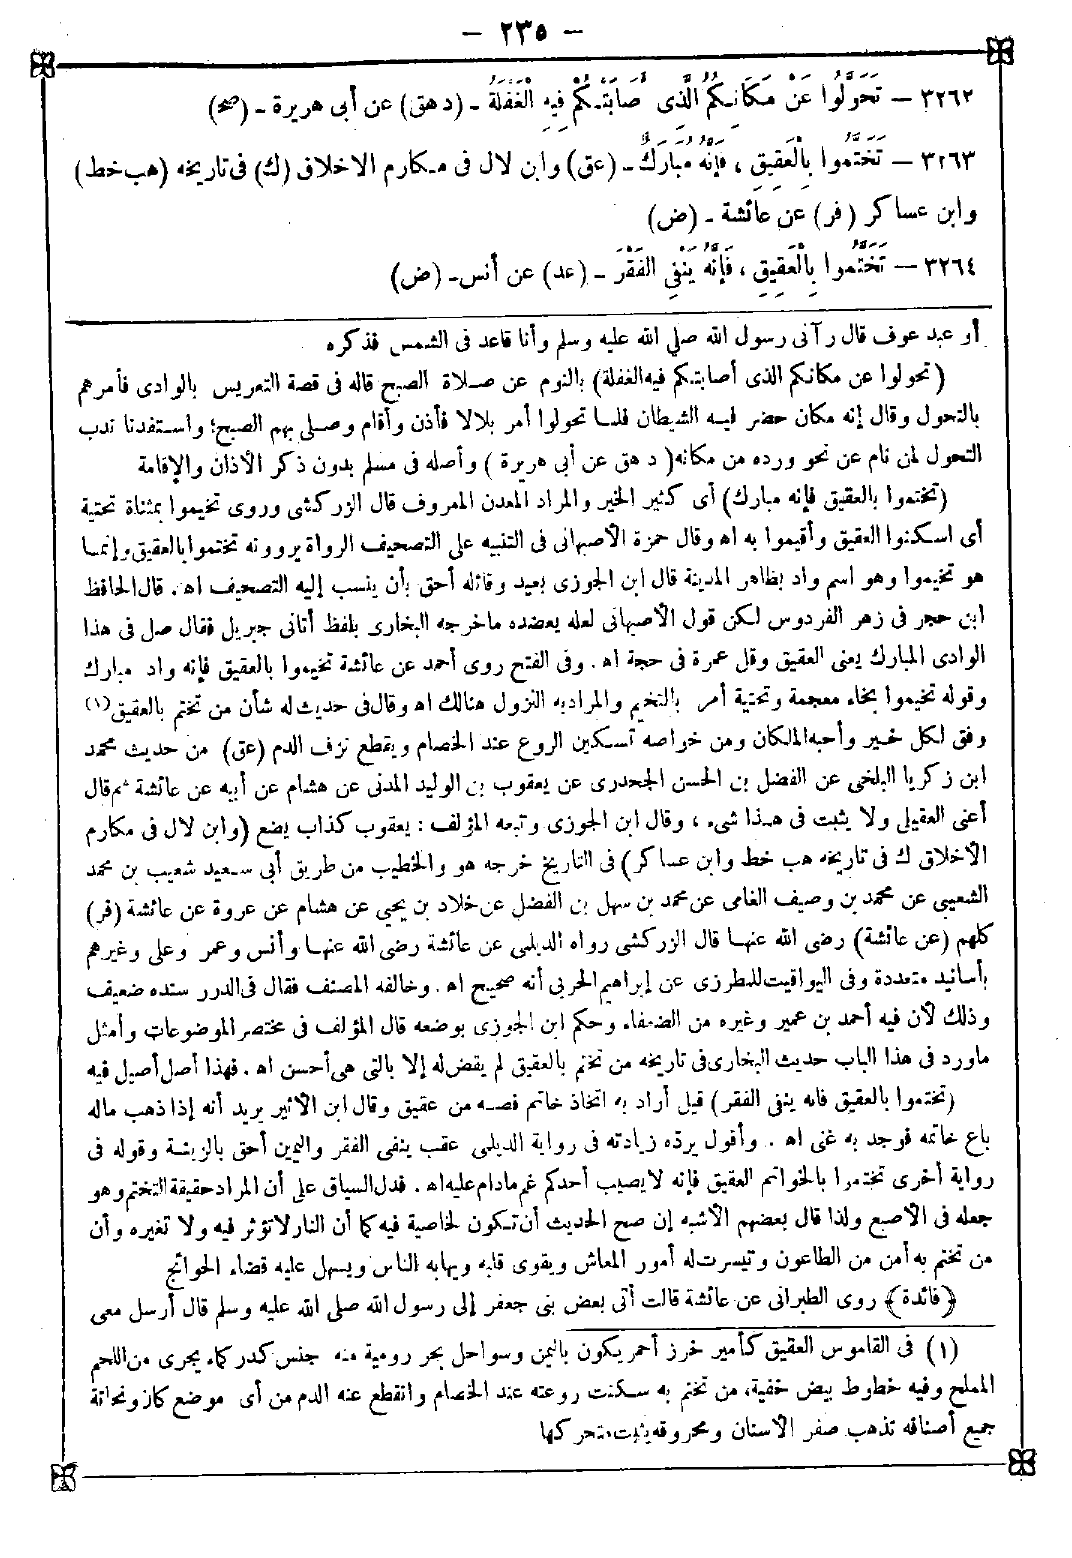 - ٢٣٥ -
٣٢٦٢ – تَحَوَّلُوا عَنْ مَكَانِكُمُ الَّذِى أَصَابَتْكُمْ فِيهِ الْغَفْلَةُ - (د هق) عن أبى هريرة - (صح)
٣٢٦٣ – تَخَتَّمُوا بِالْعَقِيقِ ، فَإِنَّهُ مُبَارَكٌ - (عق) وابن لال فى مكارم الاخلاق (ك) فى تاريخه (هب خط)
وابن عساكر (فر) عن عائشة - (ض)
٣٢٦٤ – تَخَتَّمُوا بِالْعَقِيقِ ، فَإِنَّهُ يَنْفِى الْفَقْرَ - (عد) عن أنس - (ض)
أو عبد عوف قال رآنى رسول الله صلى الله عليه وسلم وأنا قاعد فى الشمس فذكره
(تحولوا عن مكانكم الذى أصابتكم فيه الغفلة) بالنوم عن صلاة الصبح قاله فى قصة التعريس بالوادى فأمرهم
بالتحول وقال إنه مكان حضر فيه الشيطان فلما تحولوا أمر بلالا فأذن وأقام وصلى بهم الصبح؛ واستفدنا ندب
التحول لمن نام عن نحو ورده من مكانه (د هق عن أبى هريرة) وأصله فى مسلم بدون ذكر الأذان والإقامة
(تختموا بالعقيق فإنه مبارك) أى كثير الخير والمراد المعدن المعروف قال الزركشى وروى تخيموا بمثناة تحتية
أى اسكنوا العقيق وأقيموا به اه وقال حمزة الأصبهانى فى التنبيه على التصحيف الرواة يروونه تختموا بالعقيق وإنما
هو تخيموا وهو اسم واد بظاهر المدينة قال ابن الجوزى بعيد وقائله أحق بأن ينسب إليه التصحيف اه. قال الحافظ
ابن حجر فى زهر الفردوس لكن قول الأصبهانى لعله يعضده ماخرجه البخارى بلفظ أتانى جبريل فقال صل فى هذا
الوادى المبارك يعنى العقيق وقل عمرة فى حجة اه. وفى الفتح روى أحمد عن عائشة تخيموا بالعقيق فإنه واد مبارك
وقوله تخيموا بخاء معجمة وتحتية أمر بالتخيم والمراد به النزول هنالك اه وقال فى حديث له شأن من تختم بالعقيق(١)
وفق لكل خير وأحبه الملكان ومن خواصه تسكين الروع عند الخصام ويقطع نزف الدم (عق) من حديث محمد
ابن زكريا البلخى عن الفضل بن الحسن الجحدرى عن يعقوب بن الوليد المدنى عن هشام عن أبيه عن عائشة ثم قال
أعنى العقيلى ولا يثبت فى هذا شىء ، وقال ابن الجوزى وتبعه المؤلف : يعقوب كذاب يضع (وابن لال فى مكارم
الأخلاق ك فى تاريخه هب خط وابن عساكر) فى التاريخ خرجه هو والخطيب من طريق أبى سعيد شعيب بن محمد
الشعيبى عن محمد بن وصيف الغامى عن محمد بن سهل بن الفضل عن خلاد بن يحيى عن هشام عن عروة عن عائشة (فر)
كلهم (عن عائشة) رضى الله عنها قال الزركشى رواه الديلمى عن عائشة رضى الله عنها وأنس وعمر وعلى وغيرهم
بأسانيد متعددة وفى اليواقيت للمطرزى عن إبراهيم الحربى أنه صحيح اه . وخالفه المصنف فقال فى الدرر سنده ضعيف
وذلك لأن فيه أحمد بن عمير وغيره من الضعفاء وحكم ابن الجوزى بوضعه قال المؤلف فى مختصر الموضوعات وأمثل
ماورد فى هذا الباب حديث البخارى فى تاريخه من تختم بالعقيق لم يقض له إلا بالتى هى أحسن اه . فهذا أصل أصيل فيه
(تختموا بالعقيق فانه ينفى الفقر) قيل أراد به اتخاذ خاتم فصه من عقيق وقال ابن الأثير يريد أنه إذا ذهب ماله
باع خاتمه فوجد به غنى اه . وأقول يرده زيادته فى رواية الديلمى عقب ينفى الفقر واليمين أحق بالزينة وقوله فى
رواية أخرى تختموا بالخواتم العقيق فإنه لايصيب أحدكم غم مادام عليه اه . فدل السياق على أن المراد حقيقة التختم وهو
جعله فى الأصبع ولذا قال بعضهم الأشبه إن صح الحديث أن تكون لخاصية فيه كما أن النار لا تؤثر فيه ولا تغيره وأن
من تختم به أمن من الطاعون وتيسرت له أمور المعاش ويقوى قلبه ويهابه الناس ويسهل عليه قضاء الحوائج
﴿فائدة﴾ روى الطبرانى عن عائشة قالت أتى بعض بنى جعفر إلى رسول الله صلى الله عليه وسلم قال أرسل معى
(١) فى القاموس العقيق كأمير خرز أحمر يكون باليمن وسواحل بحر رومية منه جنس كدر كماء يجرى من اللحم
المملح وفيه خطوط بيض خفية، من تختم به سكنت روعته عند الخصام وانقطع عنه الدم من أى موضع كان ونحاتة
جميع أصنافه تذهب صفر الأسنان ومحروقه يثبت متحركها